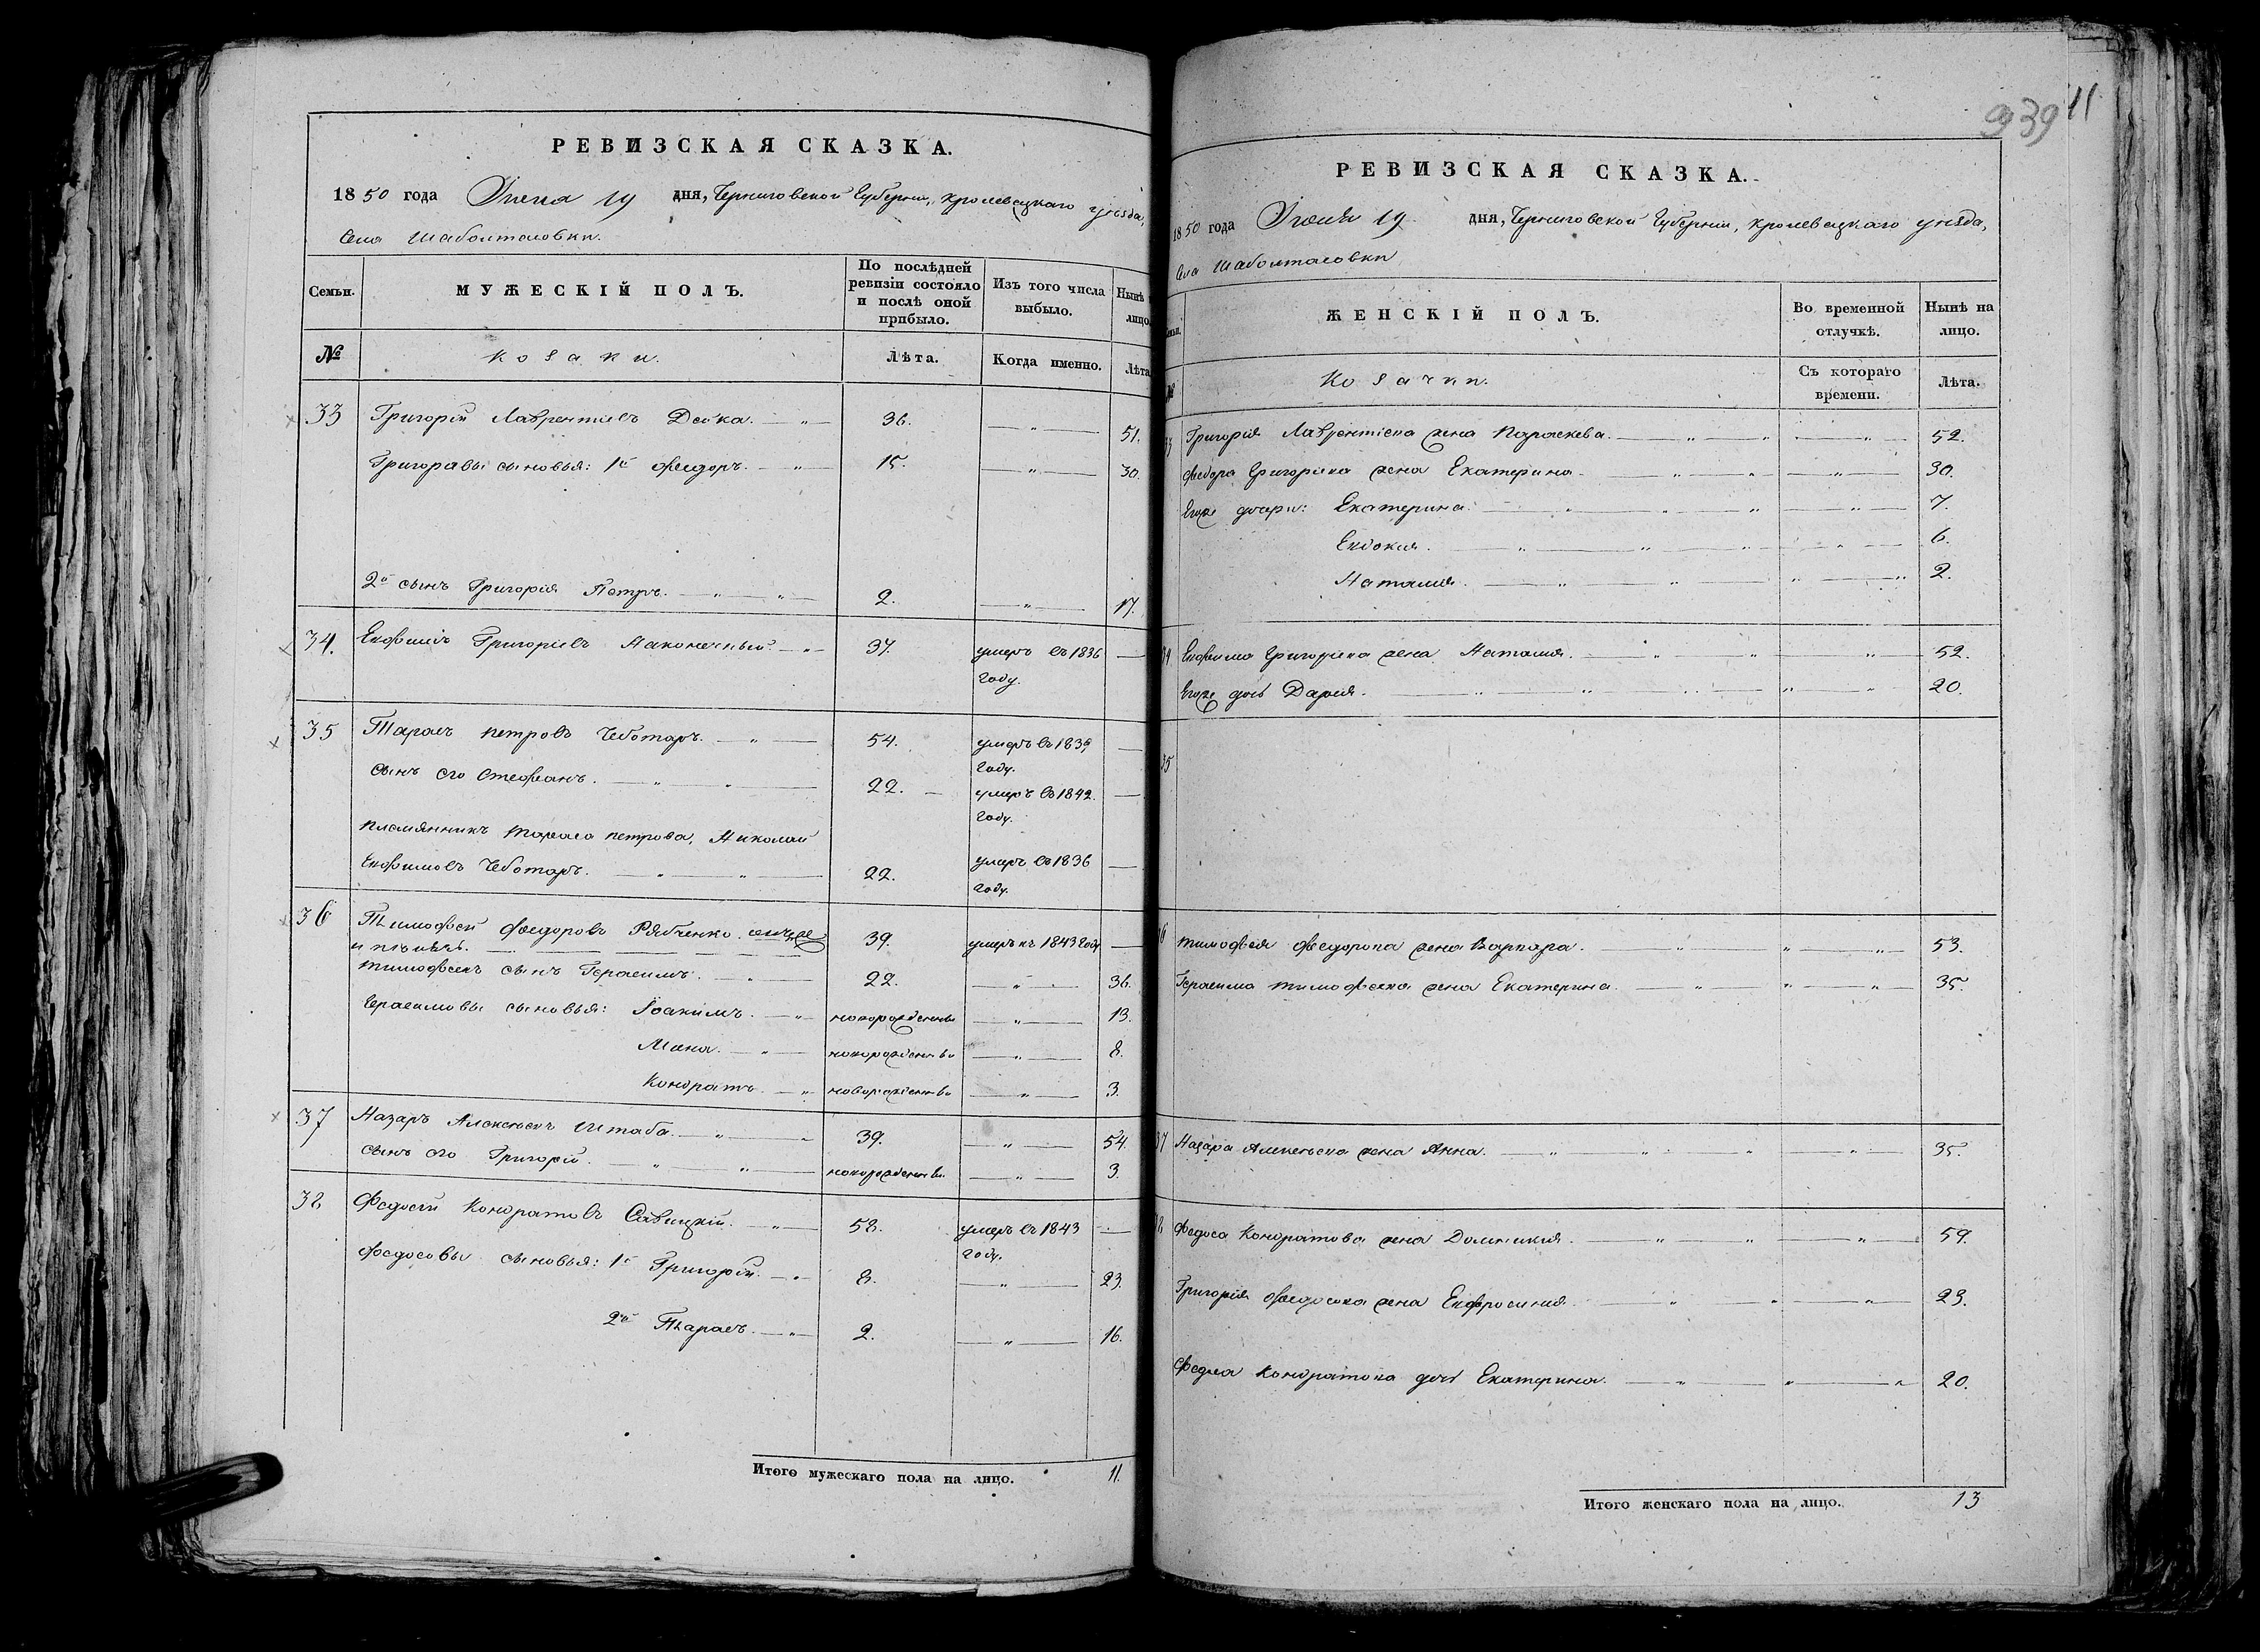 РЕВИЗСКАЯ СКАЗКА.
1850 года Іюня 19 дня, Черниговской Губерніи, Кролевецкаго уѣзда,
Села Шаболтасовки.
Семьи.
МУЖЕСКІЙ ПОЛЪ.
По послѣдней ревизіи состояло и послѣ оной прибыло.
Изъ того числа выбыло.
Нынѣ на лицо.
№
Козаки.
Лѣта.
Когда именно.
Лѣта
33 Григорій Лаврентіевъ Дейка. — „ — 36. — „ — 51.
Григоравы сыновья: 1й Феодоръ. — „ 15. — „ — 30.
2й сынъ Григорія Петръ. — „ — „ — 2. — „ — 17.
34. Евфимъ Григоріевъ Наконечный — „ — 37. умеръ въ 1836 —
году.
35 Тарасъ Петровъ Чеботаръ. — „ — 54. умеръ въ 1839 —
году.
сынъ его Стефанъ. — „ — „ — 22. — умеръ въ 1842. —
году.
племянникъ Тараса Петрова, Николай
Евфимовъ Чеботаръ. — „ — „ — 22. умеръ въ 1836 —
году.
36 Тимофей Феодоровъ Рябченко. 39. умеръ въ 1843 году —
Тимофеевъ сынъ Герасимъ. — „ — 22. — „ — 36.
Герасимовы сыновья: Іоакимъ. — „ новорожденны — „ — 13.
— „ новорожденны — „ — 8.
Кондратъ. — „ новорожденны — „ — 3.
37 Назаръ Алексѣевъ Штаба. — „ — 39. — „ — 54
сынъ его Григорій. — „ — „ — новорожденны. — „ — 3.
38 Федосій Кондратовъ Савицкій. — „ — 58. умеръ въ 1843 —
году.
Федосовы сыновья: 1й Григорій. — „ 8. — „ — 23.
2й Тарасъ. — „ — 2. — „ — 16.
Итого мужескаго пола на лицо. 11.
939 11
РЕВИЗСКАЯ СКАЗКА.
1850 года Іюня 19 дня, Черниговской Губерніи, Кролевецкаго уѣзда,
Села Шаболтасовки
ЖЕНСКІЙ ПОЛЪ.
Во временной отлучкѣ.
Нынѣ на лицо.
Козачки.
Съ котораго времени.
Лѣта.
Григорія Лаврентіева жена Параскева. 52.
Феодора Григоріева жена Екатерина. 30.
Егоже дочери: Екатерина. 7.
Евдокия. 6.
Наталия. 2.
Евфима Григоріева жена Наталия. 52.
Егоже дочь Дария. 20.
35
Тимофея Феодорова жена Варвара. 53.
Герасима Тимофеева жена Екатерина. 35.
Назара Алексѣева жена Анна. 35.
Федоса Кондратова жена Домникия. 59.
Григорія Федосова жена Евфросиния. 23.
Кондратова дочь Екатерина. 20.
Итого женскаго пола на лицо. 13